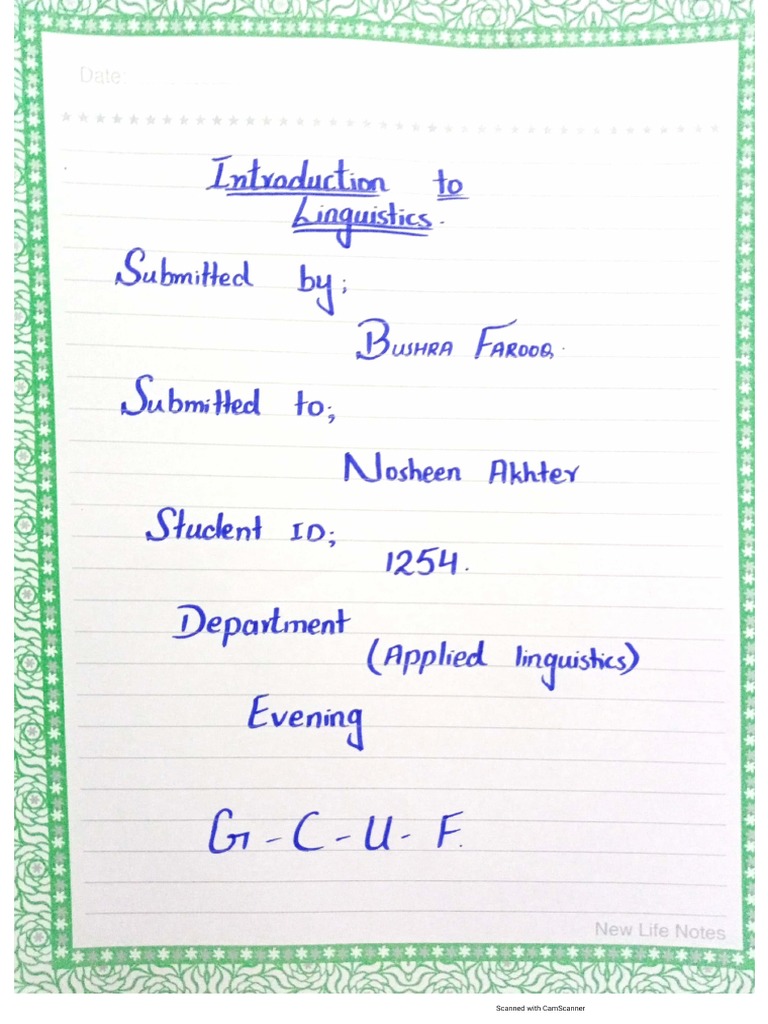 Date:
Introduction to
Linguistics.
Submitted by;
BUSHRA FAROOQ.
Submitted to;
Nosheen Akhter
Student ID;
1254.
Department
(Applied linguistics)
Evening
G-C-U-F.
New Life Notes
Scanned with CamScanner